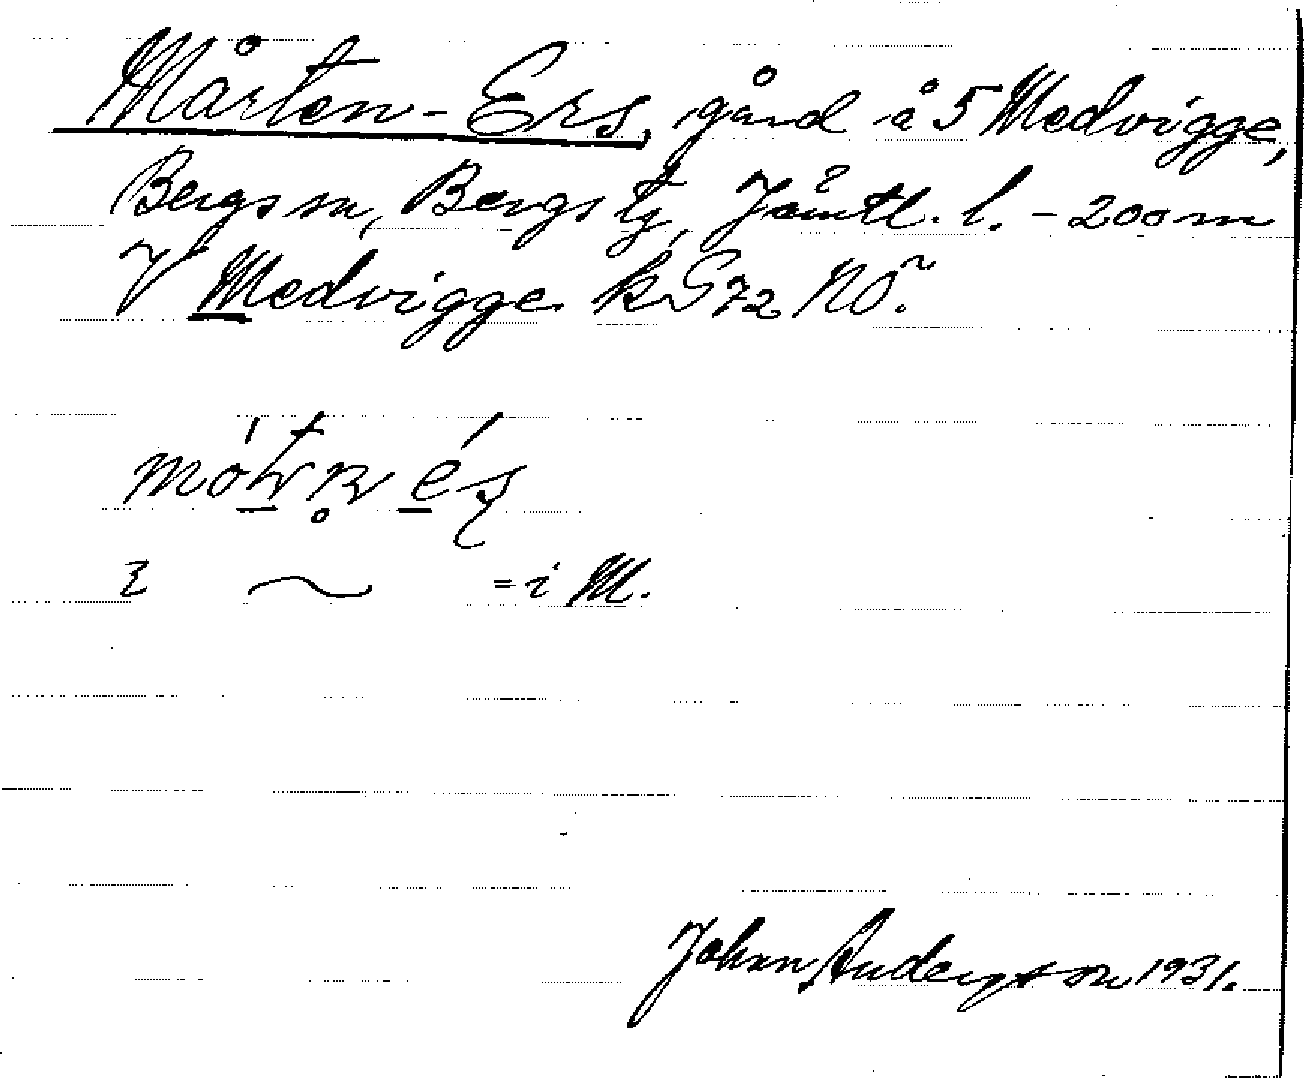 Mårten-Ers, gård å 5 Medvigge,
Bergs sn, Bergs tg, Jämtl. l. - 200 m
V Medvigge k G 72 NÖ.
= i M.
Johan Anderson 1931.